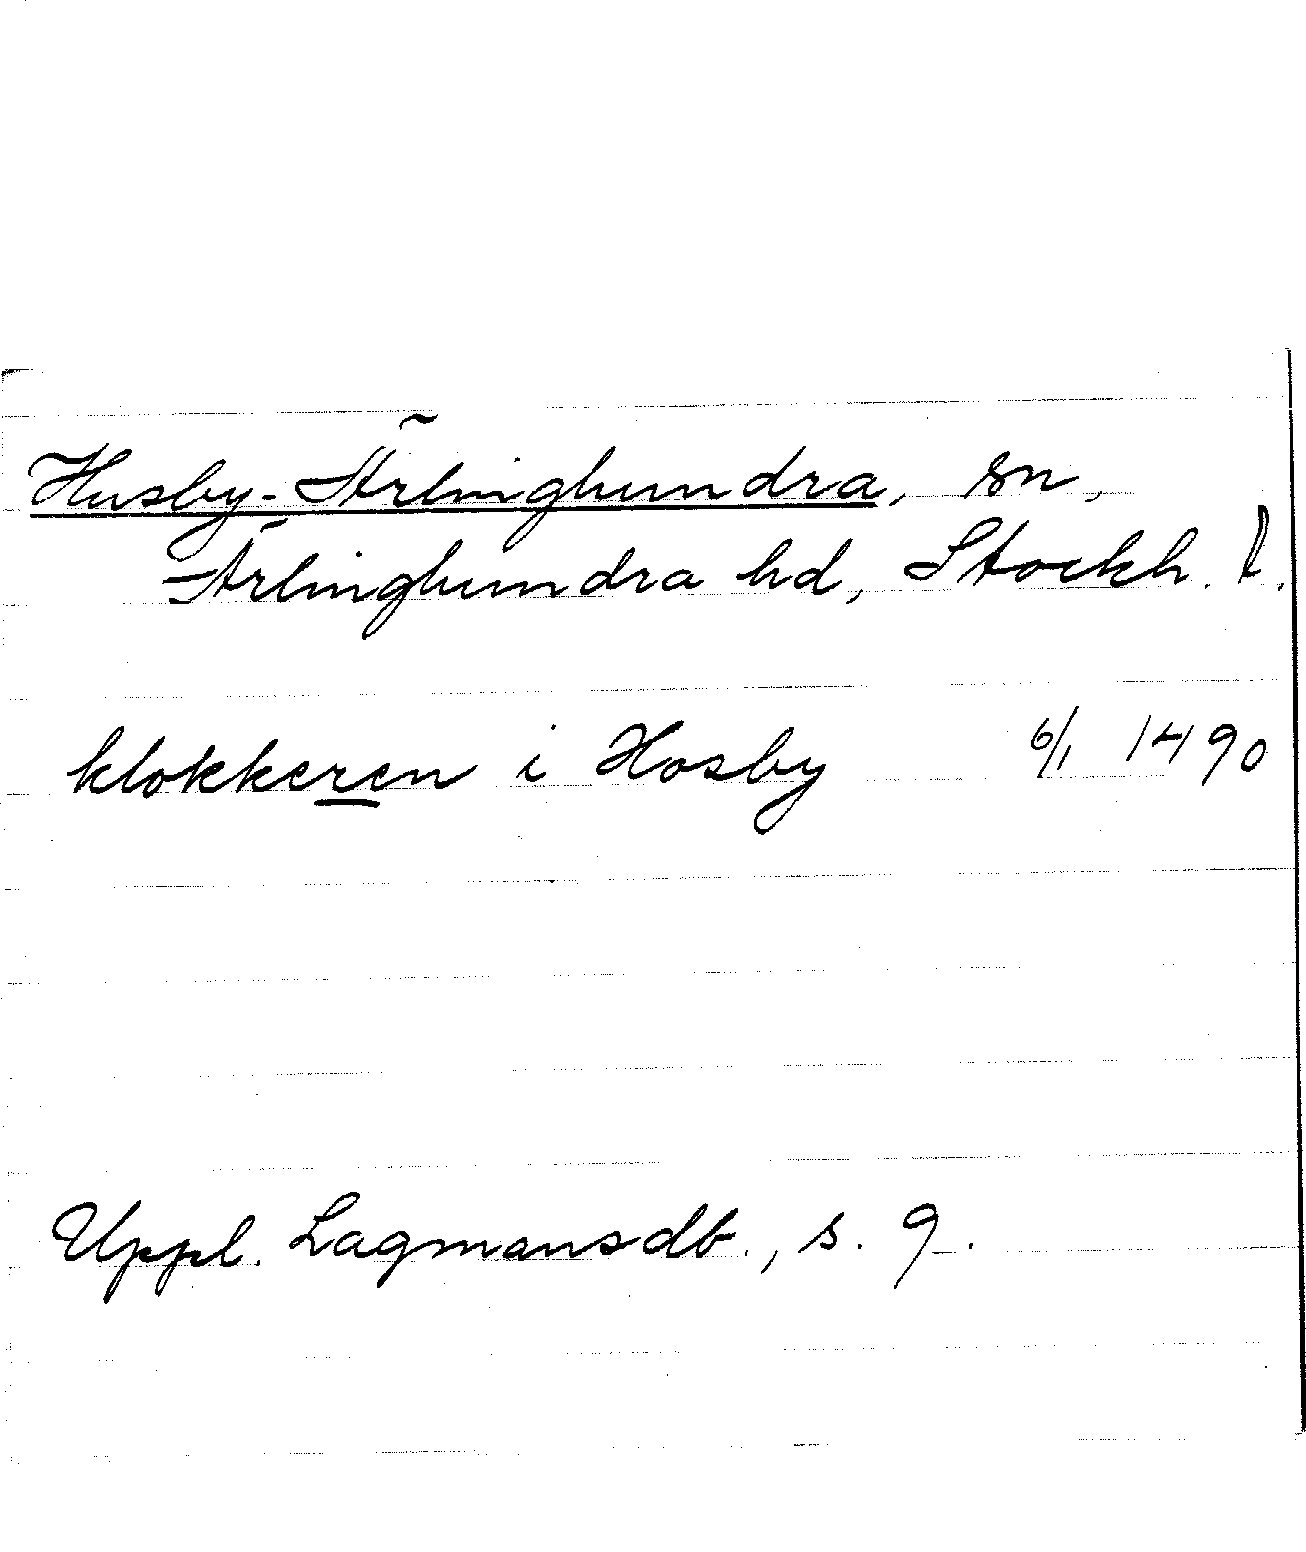 Husby-Ärlinghundra, sn,
Ärlinghundra hd, Stockh. l.
klokkeren i Hosby 6/1 1490
Uppl. Lagmansdb., s. 9.